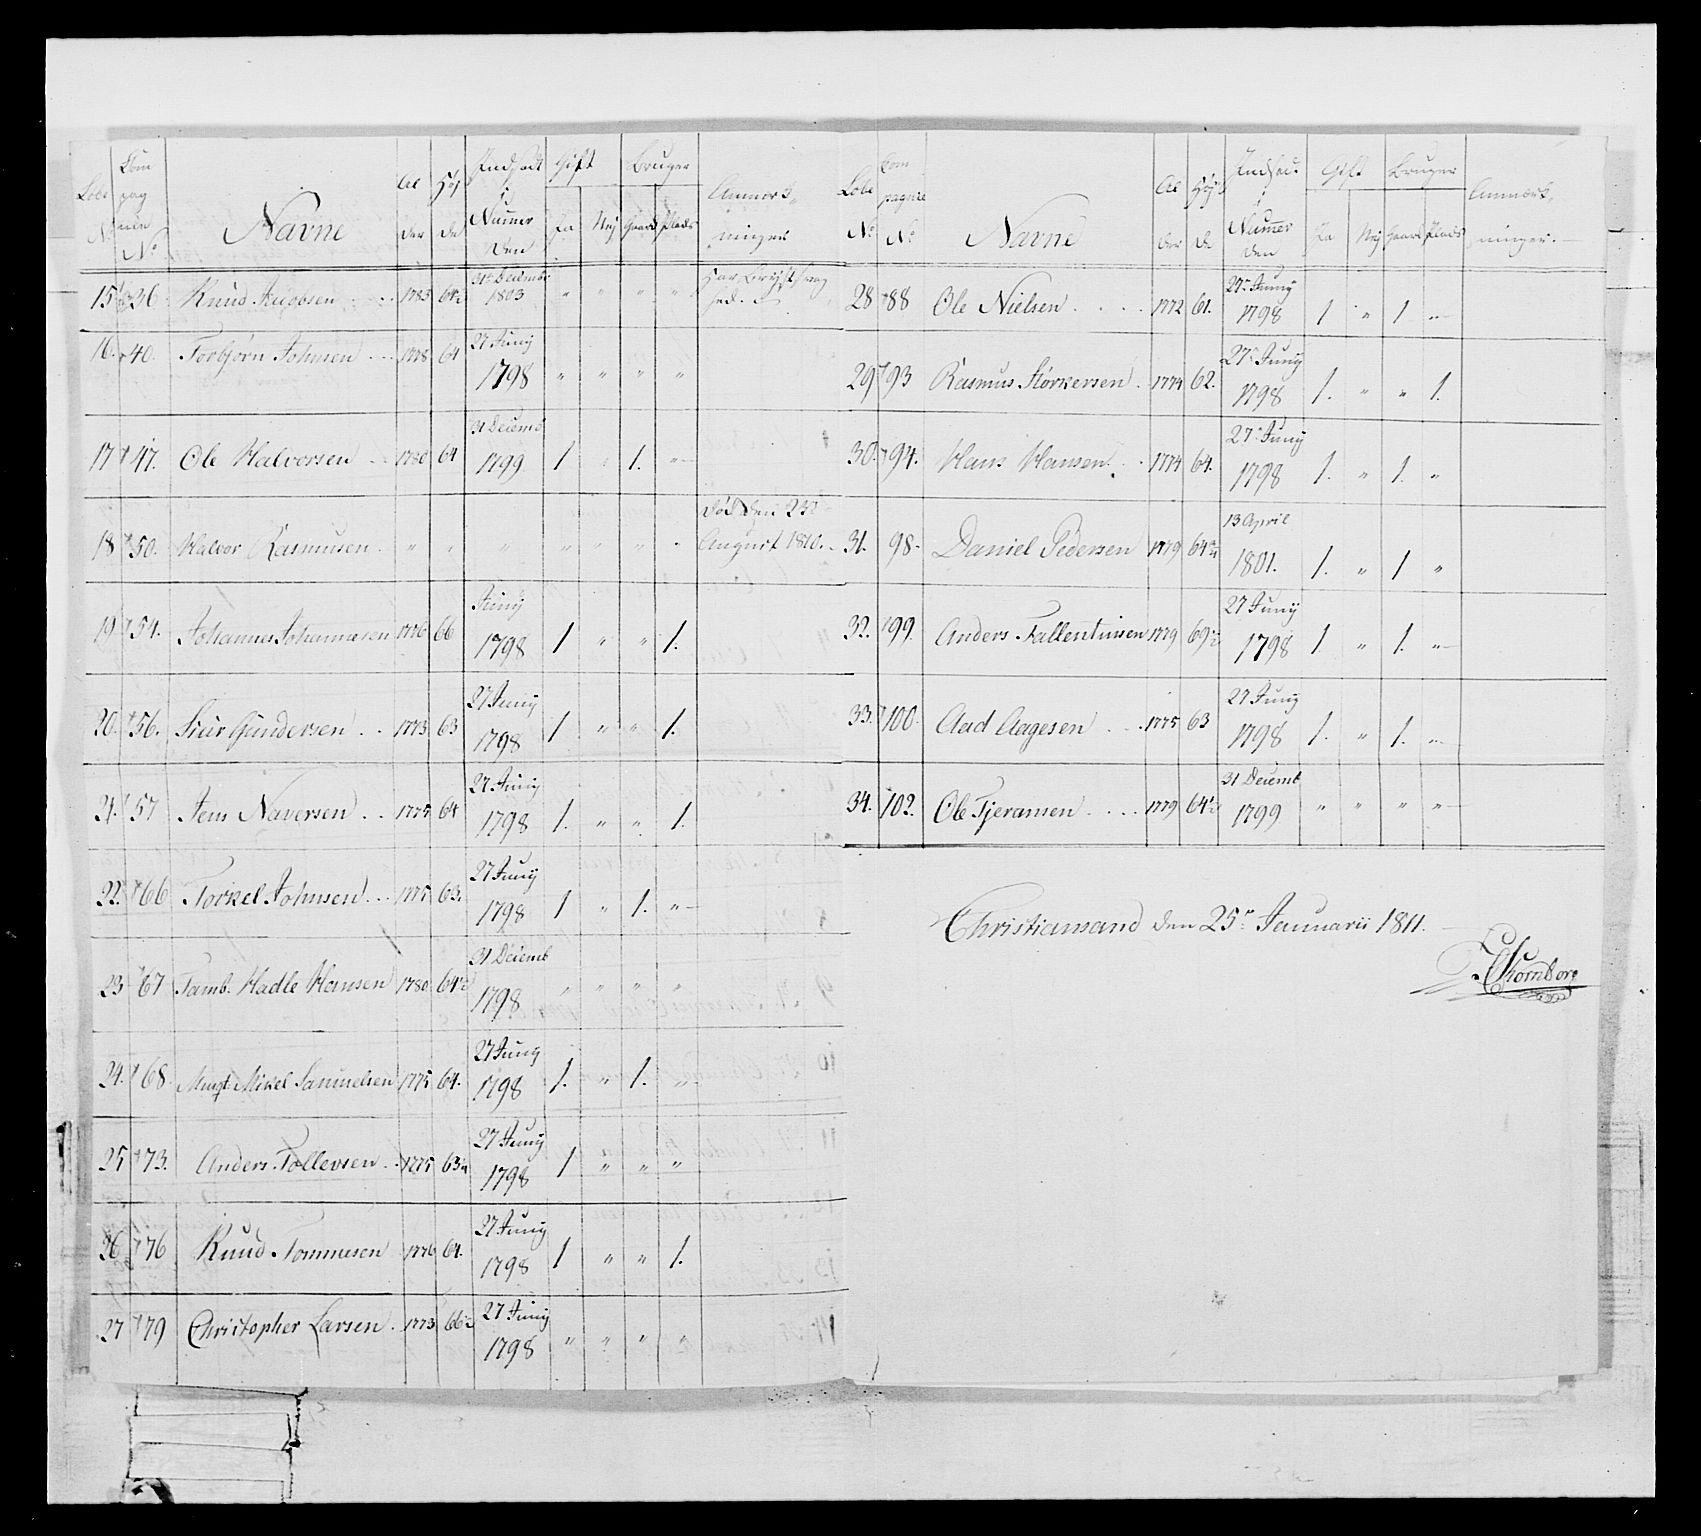 Løbe No | Com pag nie No | Navne | Al der | Høj de | Indsadt i Numer den | Gift Ja | Nej | Bruger Gaard | Plads | Anmærk ninger
15 | 36 | Knud Jacobsen | 1783 | 64½ | 31 Decembr 1803 | " | " | " | " | har Brystsvag hed.
16. | 40. | Torbjørn Johnsen | 1778 | 64 | 27 Junij 1798 | " | " | " | "
17 | 47. | Ole Halvorsen | 1780 | 64 | 31 Decemb 1799 | 1 | " | 1. | "
18 | 50. | Halvor Rasmusen | " | " | | " | " | " | " | død den 23 August 1810.
19 | 54. | Johannes Johannesen | 1776 | 66 | Junij 1798 | 1 | " | " | 1.
20. | 56. | Siur Gundersen | 1773 | 63 | 27 Junij 1798 | 1 | " | " | 1.
21. | 57 | Jens Naversen | 1775 | 64 | 27 Junij 1798 | 1. | " | " | 1.
22. | 66 | Torkel Johnsen | 1775 | 63. | 27 Junij 1798 | 1 | " | 1. | "
23 | 67 | Tamb. Hadle Hansen | 1780 | 64½ | 31 Decemb 1798 | " | " | " | "
24. | 68. | Mikel Samuelsen | 1775 | 64. | 27 Junij 1798 | 1. | " | 1. | "
25 | 73. | Anders Tollevsen | 1775 | 63 | 27 Junij 1798 | 1 | " | " | "
26 | 76 | Knud Tommesen | 1776 | 64. | 27 Junij 1798 | 1 | " | " | 1.
27 | 79 | Christopher Larsen | 1773 | 66½ | 27 Junij 1798 | " | " | " | "
Løbe No | Com pagnie No | Navne | Al der | Høj de | Indsad i Numer den | Gift Ja | Nej | Bruger Gaard | Plads | Anmærk ninger.
28 | 88 | Ole Nielsen | 1772 | 61. | 27 Junij 1798 | 1 | " | 1 | "
29 | 93 | Rasmus Størkersen | 1774 | 62. | 27 Junij 1798 | 1. | " | " | 1.
30. | 94. | Hans Hansen | 1774 | 64. | 27 Junij 1798 | 1. | " | 1. | "
31. | 98. | Daniel Pedersen | 1779 | 64 | 13 April 1801. | 1. | " | 1 | "
32. | 99. | Anders Fallentinsen | 1779 | 69½ | 27 Junij 1798 | 1 | " | 1. | "
33. | 100. | Aad Aagesen | 1775 | 63 | 27 Junij 1798 | 1. | " | 1. | "
34. | 102. | Ole Tjeransen | 1779 | 64½ | 31 Decemb 1799 | " | " | " | "
Christiansand den 25. Januarii 1811.